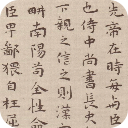 先帝在時每与臣
也侍中尚書長史
下親之信之則漢
畊南陽苟全性命
臣卑鄙猥自枉屈